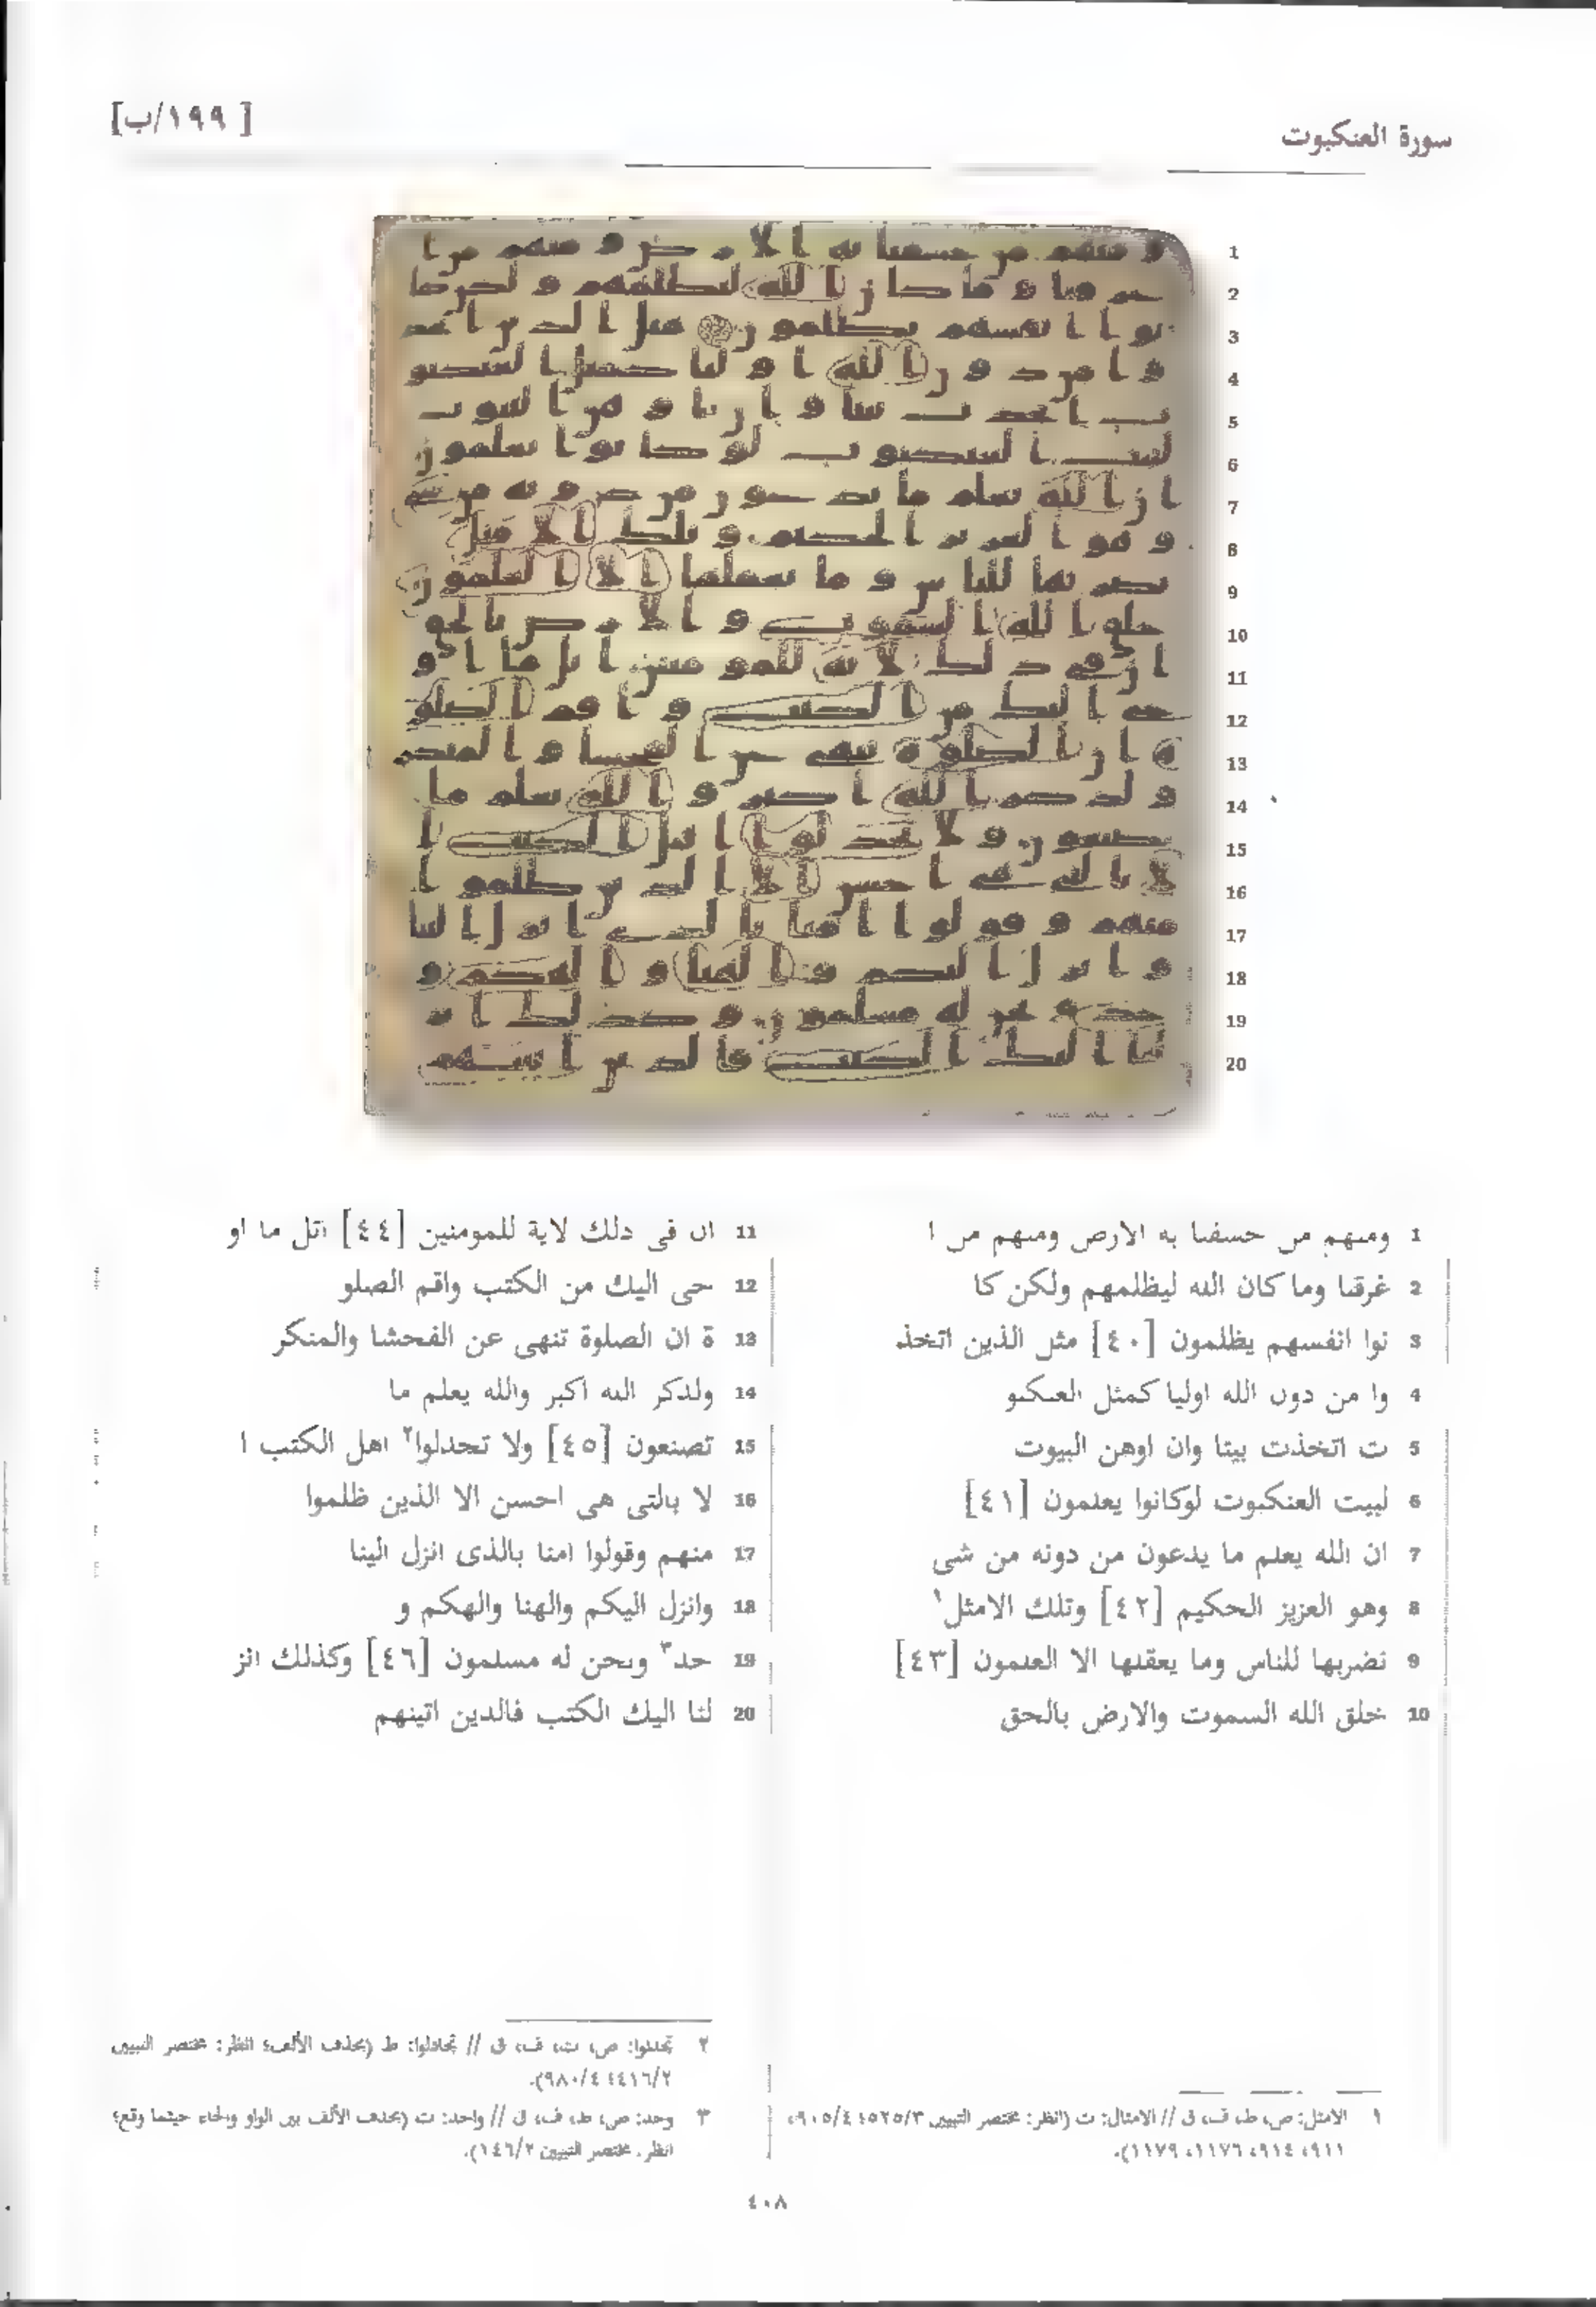 سورة العنكبوت
[١٩٩/ب]
1 ومنهم من حسفنا به الارص ومنهم من ا
2 غرقنا وما كان الله ليظلمهم ولكن كا
3 نوا انفسهم يظلمون [٤٠] مثل الذين اتخذ
4 وا من دون الله اوليا كمثل العنكبو
5 ت اتخذت بيتا وان اوهن البيوت
6 لبيت العنكبوت لوكانوا يعلمون [٤١]
7 ان الله يعلم ما يدعون من دونه من شى
8 وهو العزيز الحكيم [٤٢] وتلك الامثل١
9 نضربها للناس وما يعقلها الا العلمون [٤٣]
10 خلق الله السموت والارض بالحق
11 ان فى دلك لاية للمومنين [٤٤] اتل ما او
12 حى اليك من الكتب واقم الصلو
13 ة ان الصلوة تنهى عن الفحشا والمنكر
14 ولذكر الله اكبر والله يعلم ما
15 تصنعون [٤٥] ولا تجدلوا٢ اهل الكتب ا
16 لا بالتى هى احسن الا الذين ظلموا
17 منهم وقولوا امنا بالذى انزل الينا
18 وانزل اليكم والهنا والهكم و
19 حد٣ ونحن له مسلمون [٤٦] وكذلك انز
20 لنا اليك الكتب فالدين اتينهم
١ الامثل: ص، ط، ف، ق // الامثال: ت (انظر: مختصر التبيين ٥٢٥/٣؛ ٩٠٥/٤،
٩١١، ٩١٤، ١١٧٦، ١١٧٩).
٢ تجدلوا: ص، ت، ف، ق // تجادلوا: ط (بحذف الألف؛ انظر: مختصر التبيين
٤١٦/٢؛ ٩٨٠/٤).
٣ وحد: ص، ط، ف، ق // واحد: ت (بحذف الألف بين الواو والحاء حيثما وقع؛
انظر. مختصر التبيين ١٤٦/٢).
٤٠٨